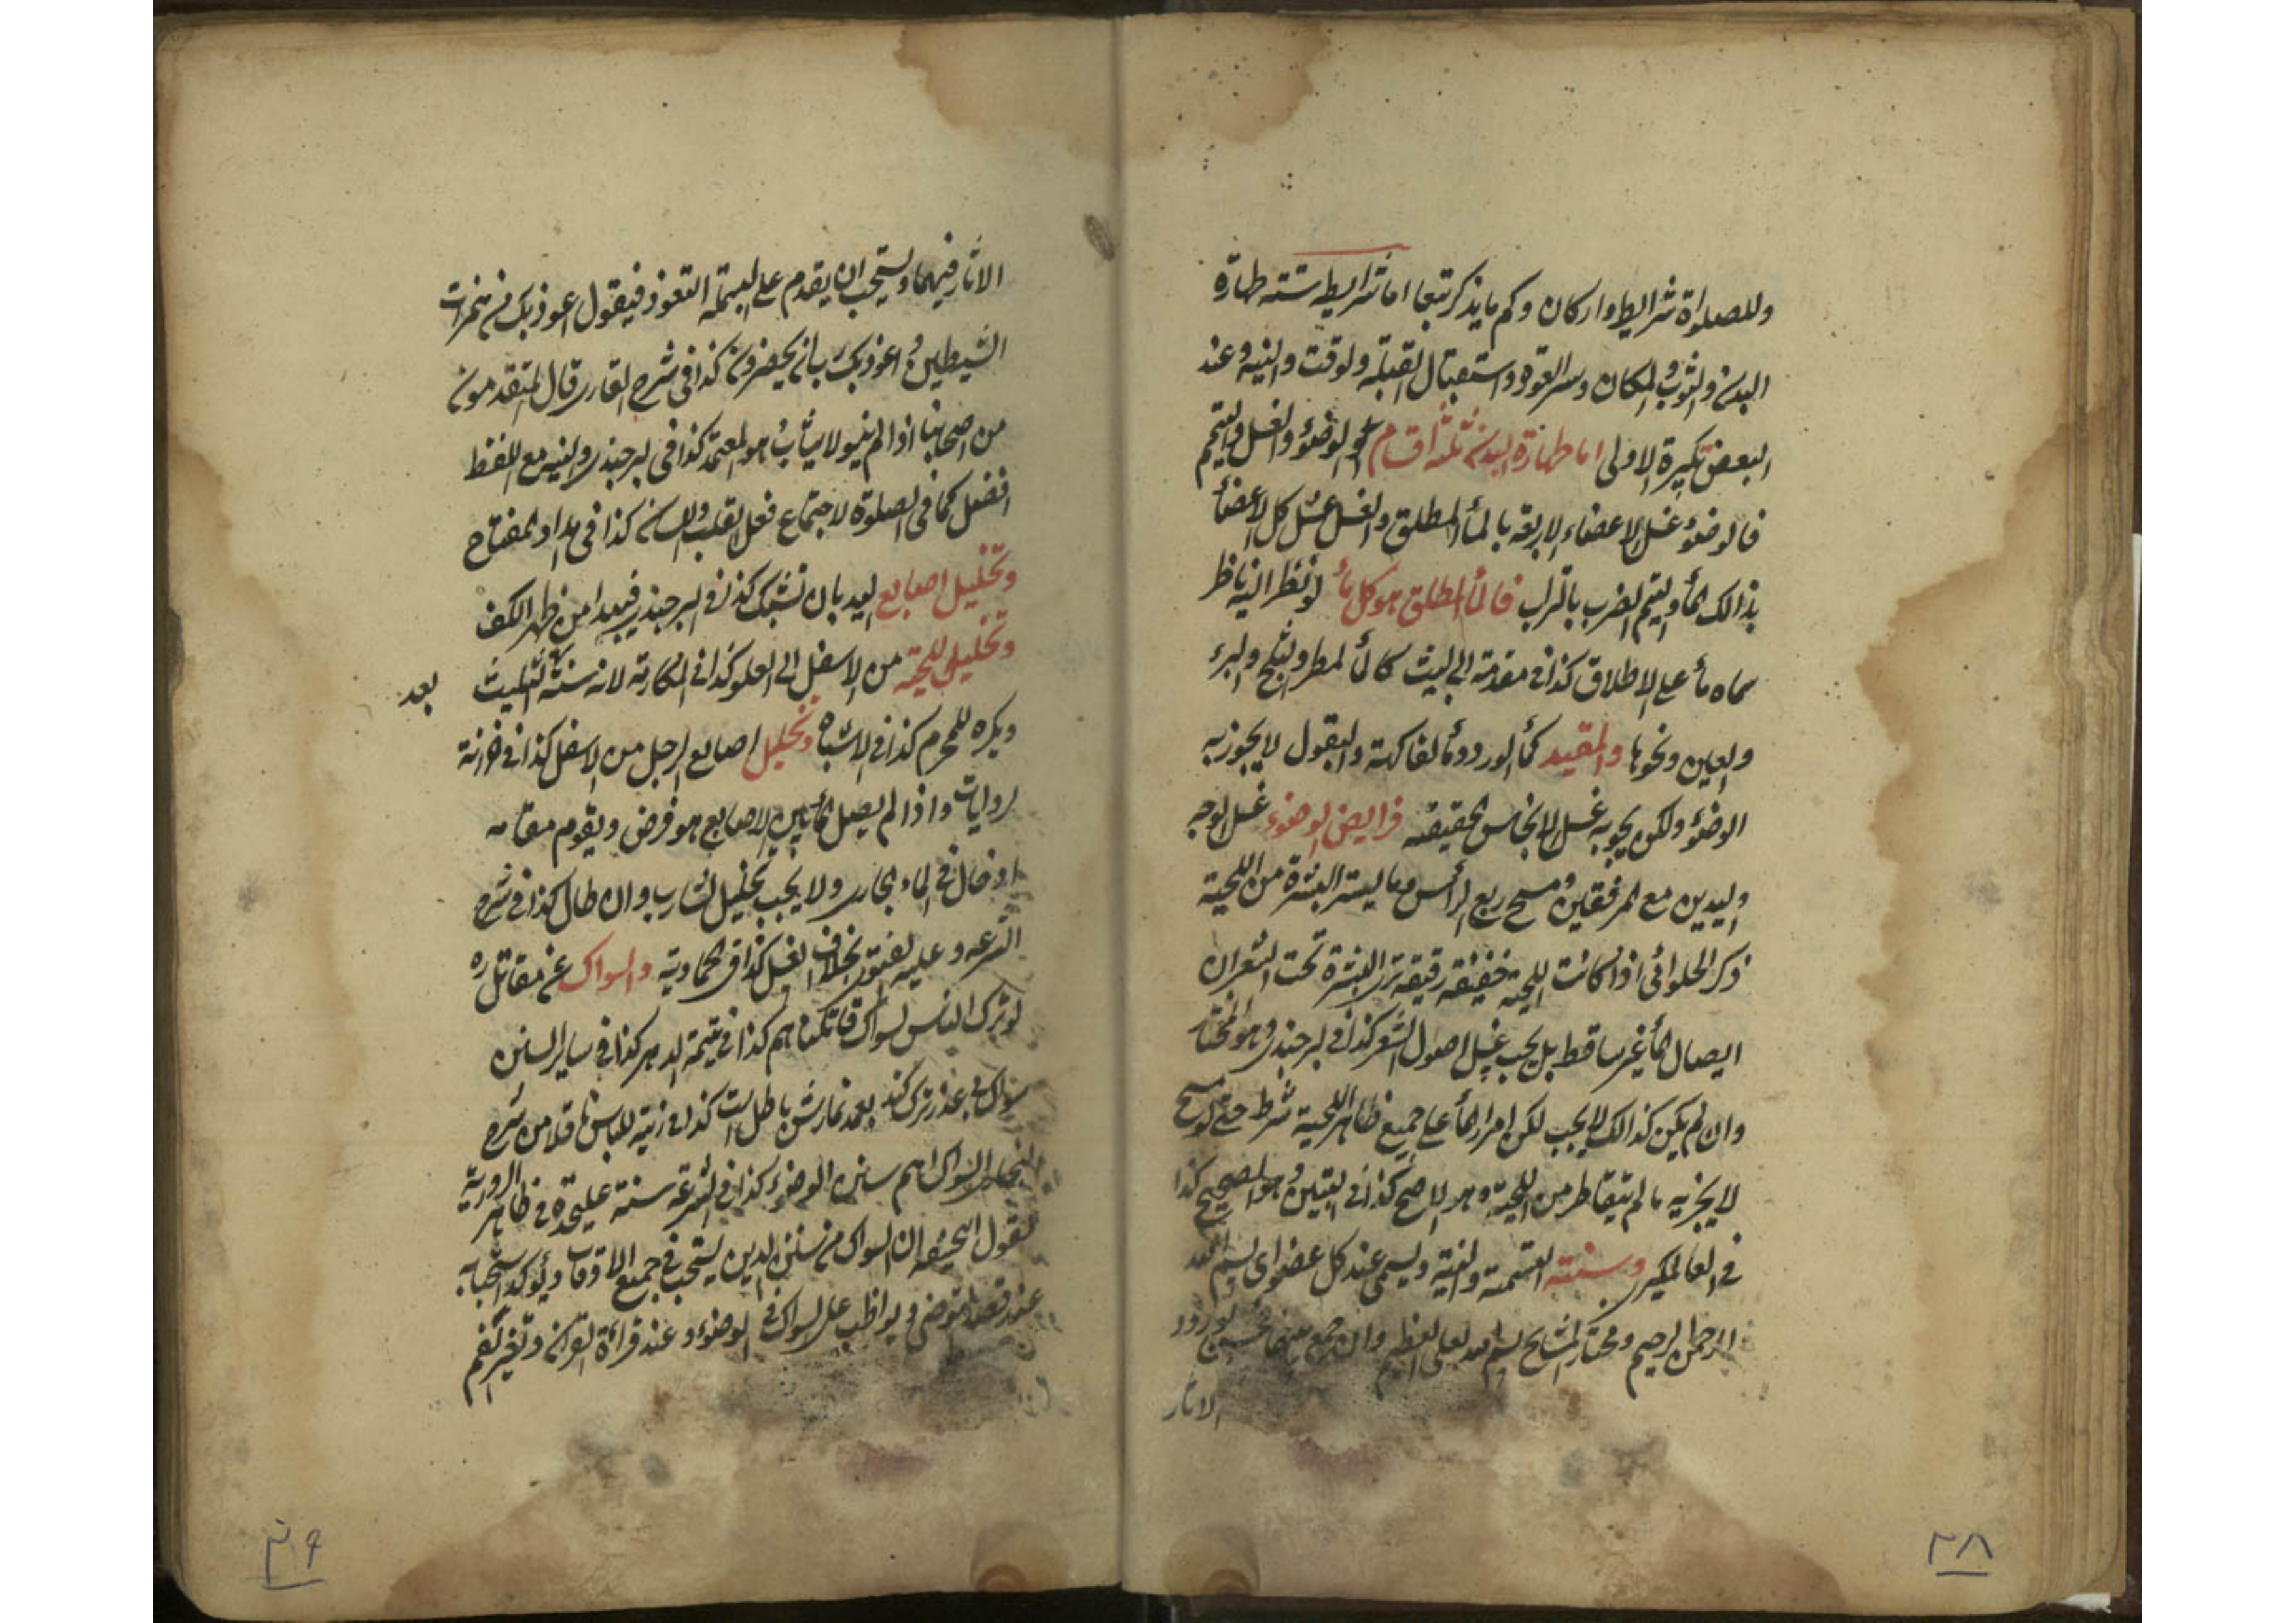 وللصلواة شرايط واركان وكم مايذكر تبعا اما شرايط ستة طهارة
البدن والثوب والمكان وستر العورة واستقبال القبلة ولوقت والنية وعند
البعض تكبيرة الاولى اما طهارة البدن ثلثة اقسام الوضوء والغسل والتيمم
فالوضوء غسل الاعضاء الاربعة بالمأ المطلق والغسل غسل كل الاعضأ
بذالك المأ والتيمم الضرب بالتراب فالمأ المطلق هو كل مأ لو نظر اليه ناظر
سماه مأ على الاطلاق كذا فى مقدمة ابى الليث كالمأ المطر والثلج والبرد
والعين ونحوها والمقيد كمأ الورد ومأ الفاكهة والبقول لا يجوز به
الوضوء ولكن يجوز به غسل الانجاس الحقيقة فرايض الوضوء غسل الوجه
واليدين مع المرفقين ومسح ربع الرأس وما يستر البشرة من اللحية
ذكر الحلوائى اذا كانت اللحية خفيفة رقيقة ترى البشرة تحت الشعر ان
ايصال المأ غير ساقط بل يجب غسل اصول الشعر كذا فى البرجندى وهو المختار
وان لم يكن كذالك لا يجب لكن امرار المأ على جميع ظاهر اللحية شرط حتى لو مسح
لا يجزيه ما لم يتقاطر من اللحية وهو الاصح كذا فى التبيين وهو الصحيح كذا
فى العالمكيرى وسننه التسمية والنية ويسمى عند كل عضو اى بسم الله
الرحمن الرحيم ومختار المشايخ بسم الله العلى العظيم وان جمع بينهما فحسن لورود
الاثار
الاثار فيهما ويستحب ان يقدم على البسملة التعوذ فيقول اعوذ بك من همزات
الشيطين واعوذ بك رب ان يحضرون كذا فى شرح القارى قال المتقدمون
من اصحابنا اذا لم ينو لا يثاب هو المعتمد كذا فى البرجندى والنية مع اللفظ
افضل كما فى الصلوة لاجتماع فعل القلب واللسان كذا فى امداد المفتاح
وتخليل اصابع اليد بان تشبك كذا فى البرجندى فيبدا من ظهر الكف
وتخليل اللحية من الاسفل الى العلو كذا فى لانه سنة بعد التثليث
ويكره للمحرم كذا فى الاشباه وتخليل اصابع الرجل من الاسفل كذا فى خزانة
الروايات واذا لم يصل المأ بين الاصابع هو فرض ويقوم مقامه
ادخال فى الماء الجارى ولا يجب تخليل الشارب وان طال كذا فى شرح
الشرعة وعليه الفتوى بخلاف الغسل كذا فى الحمادية والسواك عن مقاتل ره
لو ترك الناس السواك قاتلناهم كذا فى يتيمة الدهر كذا فى ساير السنن
سواك بى عذر ترك كند بعد نمازش باطل است كذا فى زينة اللباس ناقلا من شرح
السواك اهم سنن الوضوء كذا فى الشرعة سنة عليحدة فى ظاهر الرواية
لقول ابيحنيفة ان السواك من سنن الدين يستحب فى جميع الاوقات ويؤكد استحبابه
عند قصد التوضى ويواظب على السواك فى الوضوء وعند قراءة القران وتغير الفم
٢٨
٢٩